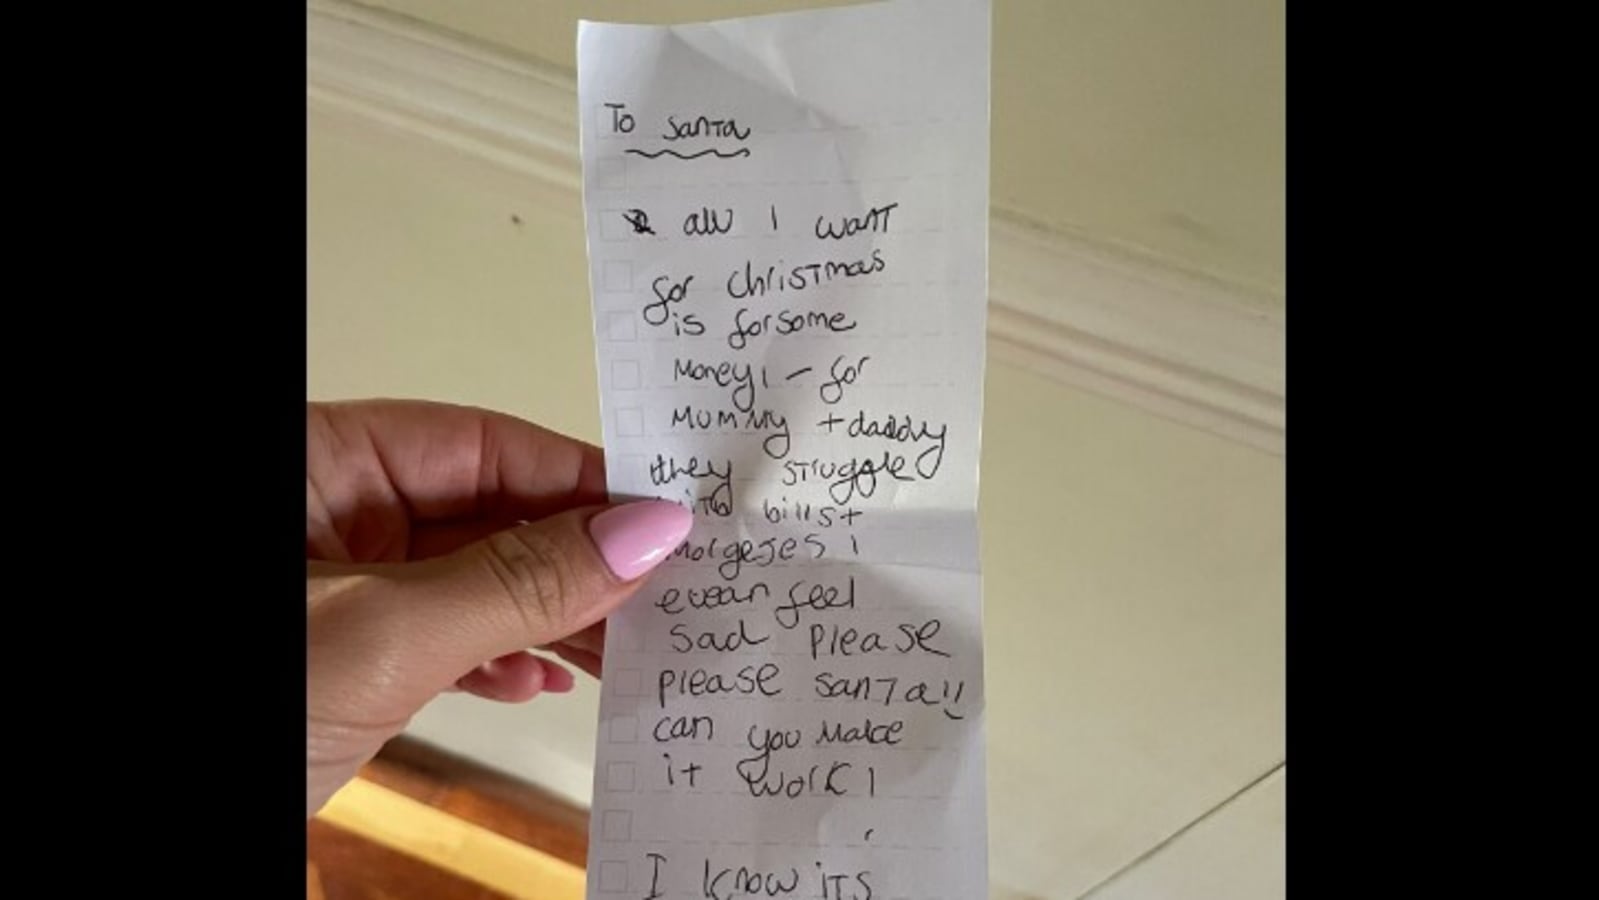 To Santa
all I want
for christmas
is forsome
Money! - for
Mummy + daddy
they struggle
bills +
morgejes I
evean feel
sad please
please santa!!
can you make
it work!
I know its